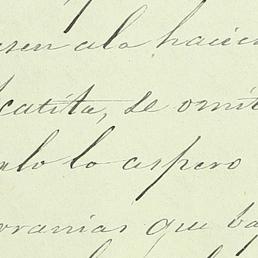 asen ala hacien
catita, se omit
nlo lo aspero
rranias que ba